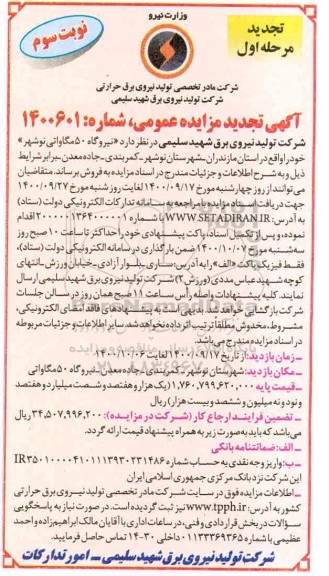 وزارت نیرو
تجدید
مرحله اول
نوبت سوم
شرکت مادر تخصصی تولید نیروی برق حرارتی
شرکت تولید نیروی برق شهید سلیمی
آگهی تجدید مزایده عمومی، شماره: ۱۴۰۰۶۰۱
شرکت تولید نیروی برق شهید سلیمی در نظر دارد «نیروگاه ۵۰ مگاواتی نوشهر»
خود را واقع در استان مازندران-شهرستان نوشهر-کمربندی-جاده معدن-برابر شرایط
ذیل و به شرح اطلاعات و جزئیات مندرج در اسناد مزایده به فروش برساند. متقاضیان
می‌توانند از روز چهارشنبه مورخ ۱۴۰۰/۰۹/۱۷ لغایت روز شنبه مورخ ۱۴۰۰/۰۹/۲۷
جهت دریافت اسناد مزایده با مراجعه به سامانه تدارکات الکترونیکی دولت (ستاد)،
به آدرس: WWW.SETADIRAN.IR با شماره ۲۰۰۰۰۰۱۳۶۴۰۰۰۰۰۱ اقدام
نموده، و پس از تکمیل اسناد، پاکت پیشنهادی خود را حداکثر تا ساعت ۱۰ صبح روز
سه‌شنبه مورخ ۱۴۰۰/۱۰/۰۷ ضمن بارگذاری در سامانه الکترونیکی دولت (ستاد)،
فقط فیزیک پاکت «الف» را به آدرس: ساری-بلوار آزادی-خیابان ورزش-انتهای
کوچه شهید عباس مددی (ورزش ۲)-شرکت تولید نیروی برق شهید سلیمی ارسال
نمایند. کلیه پیشنهادات واصله رأس ساعت ۱۱ صبح همان روز در سالن جلسات
شرکت بازگشایی خواهد شد. بدیهی است به پیشنهادهای فاقد امضای الکترونیکی،
مشروط، مخدوش مطلقا ترتیب اثر داده نخواهد شد. سایر اطلاعات و جزئیات مربوطه
در اسناد مزایده مندرج می‌باشد.
- زمان بازدید: از تاریخ ۱۴۰۰/۰۹/۱۷ لغایت ۱۴۰۰/۱۰/۰۶
- مکان بازدید: شهرستان نوشهر-کمربندی-جاده معدن-نیروگاه ۵۰ مگاواتی
- قیمت پایه ۱,۷۶۰,۷۹۹,۶۲۰,۰۰۰ (یک هزار و هفتصد و شصت میلیارد و هفتصد
و نود و نه میلیون و ششصد و بیست هزار) ریال
- تضمین فرایند ارجاع کار (شرکت در مزایده): ۳۴,۵۰۷,۹۹۶,۲۰۰ ریال
می‌باشد که باید به صورت زیر به همراه پیشنهاد قیمت ارائه گردد.
- الف: ضمانتنامه بانکی
- ب: واریز وجه نقدی به حساب شماره
این شرکت نزد بانک مرکزی جمهوری اسلامی ایران
- اطلاعات مزایده فوق در سایت شرکت مادر تخصصی تولید نیروی برق حرارتی
کشور به آدرس: www.tpph.ir نیز ثبت گردیده است. در صورت نیاز به پاسخگویی
سؤالات در بخش قراردادی و فنی، در ساعات اداری با آقایان مالک ابراهیم‌زاده و احمد
عظیمی با شماره ۰۱۱۳۳۳۶۹۳۶۵ داخلی ۳۰-۱۴ تماس حاصل فرمایید.
شرکت تولید نیروی برق شهید سلیمی - امور تدارکات